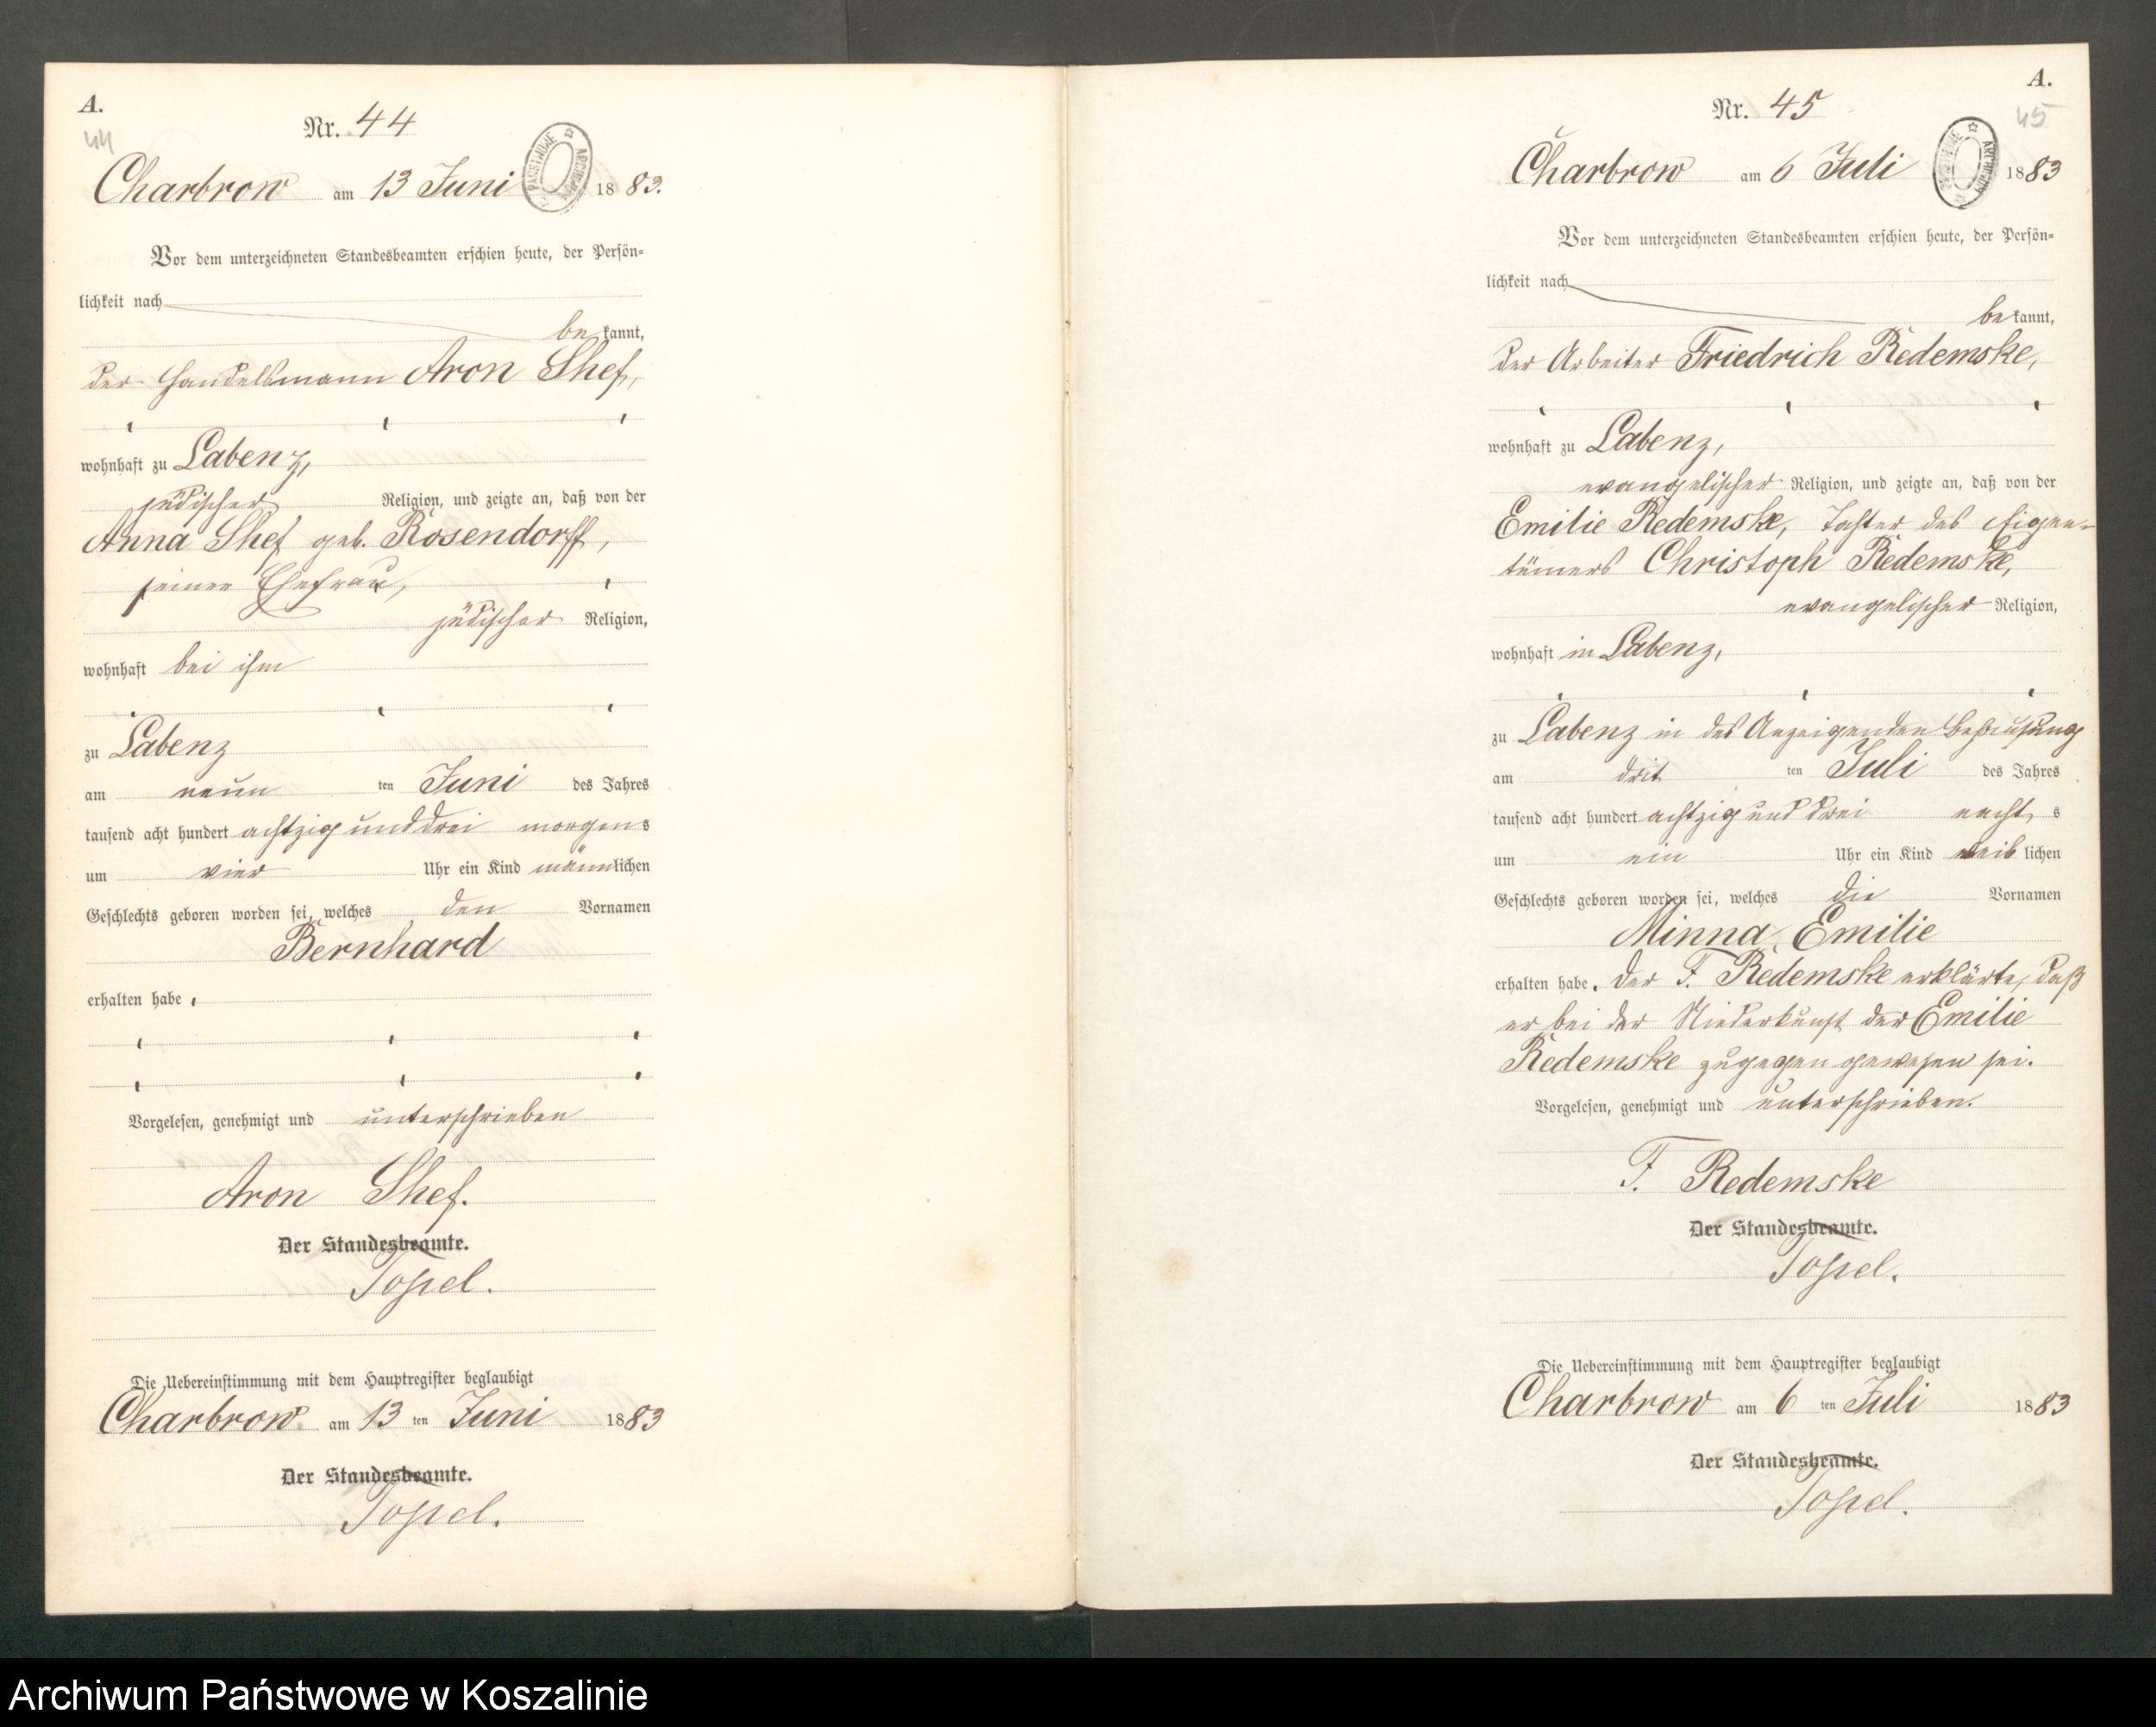 A.
44
Nr. 44
Charbrow am 13 Juni 1883.
Vor dem unterzeichneten Standesbeamten erschien heute, der Persön-
lichkeit nach
bekannt,
der Handelsmann Aron Lhef,
wohnhaft zu Labenz,
jüdischer Religion, und zeigte an, daß von der
Anna Lhef geb. Rosendorff,
seiner Ehefrau,
jüdischer Religion,
wohnhaft bei ihm
zu Labenz
am neun ten Juni des Jahres
tausend acht hundert achtzig und drei morgens
um vier Uhr ein Kind männlichen
Geschlechts geboren worden sei, welches den Vornamen
Bernhard
erhalten habe.
Vorgelesen, genehmigt und unterschrieben
Aron Lhef.
Der Standesbeamte.
Topel.
Die Uebereinstimmung mit dem Hauptregister beglaubigt
Charbrow am 13 ten Juni 1883
Der Standesbeamte.
Topel.
A.
45
Nr. 45
Charbrow am 6 Juli 1883
Vor dem unterzeichneten Standesbeamten erschien heute, der Persön-
lichkeit nach
bekannt,
der Arbeiter Friedrich Redemske,
wohnhaft zu Labenz,
evangelischer Religion, und zeigte an, daß von der
Emilie Redemske, Tochter des Eigen-
tümers Christoph Redemske,
evangelischer Religion,
wohnhaft in Labenz,
zu Labenz in des Anzeigenden Behausung
am drit ten Juli des Jahres
tausend acht hundert achtzig und drei nachts
um ein Uhr ein Kind weiblichen
Geschlechts geboren worden sei, welches die Vornamen
Minna Emilie
erhalten habe. Der F. Redemske erklärte, daß
er bei der Niederkunft der Emilie
Redemske zugegen gewesen sei.
Vorgelesen, genehmigt und unterschrieben.
F. Redemske
Der Standesbeamte.
Topel.
Die Uebereinstimmung mit dem Hauptregister beglaubigt
Charbrow am 6 ten Juli 1883
Der Standesbeamte.
Topel.
Archiwum Państwowe w Koszalinie